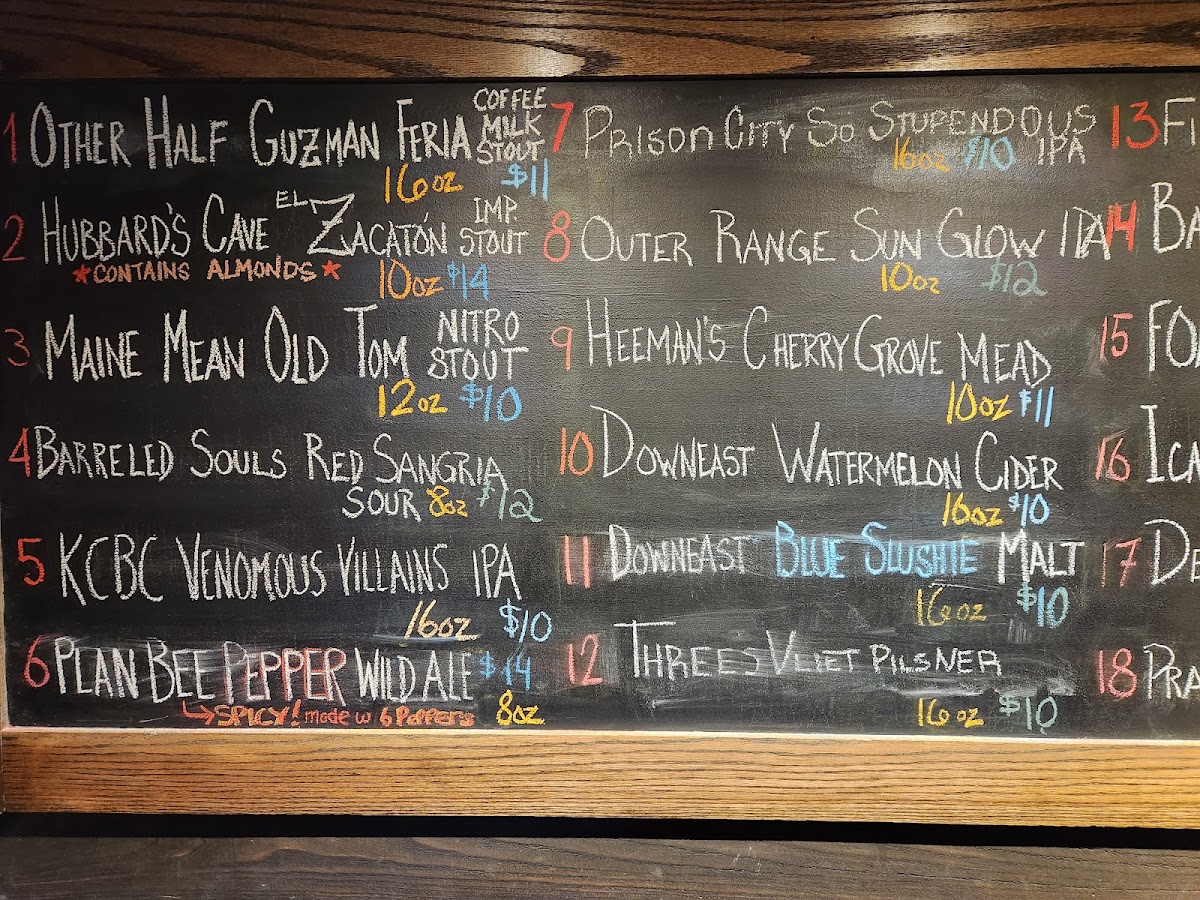 1 OTHER HALF GUZMAN FERIA COFFEE MILK STOUT
16oz $11
2 HUBBARD'S CAVE EL ZACATÓN IMP. STOUT
*CONTAINS ALMONDS* 10oz $14
3 MAINE MEAN OLD TOM NITRO STOUT
12oz $10
4 BARRELED SOULS RED SANGRIA
SOUR 8oz $12
5 KCBC VENOMOUS VILLAINS IPA
16oz $10
6 PLAN BEE PEPPER WILD ALE $14
SPICY! made w 6 Peppers 8oz
7 PRISON CITY SO STUPENDOUS
16oz $10 IPA
8 OUTER RANGE SUN GLOW IPA
10oz $12
9 HEEMAN'S CHERRY GROVE MEAD
10oz $11
10 DOWNEAST WATERMELON CIDER
16oz $10
11 DOWNEAST BLUE SLUSHIE MALT
16oz $10
12 THREES VLIET PILSNER
16oz $10
13 FI
14 BA
15 FO
16 ICA
17 DE
18 PRA